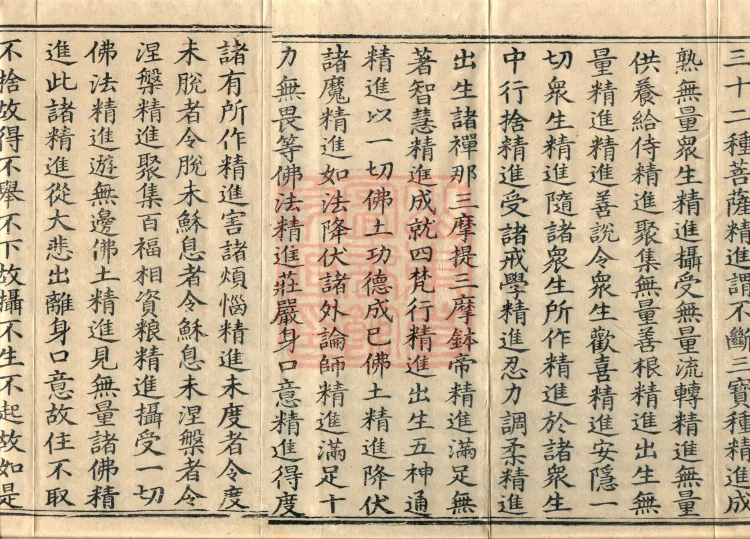 三十二種菩薩精進謂不斷三寶種精進成
熟無量眾生精進攝受無量流轉精進無量
供養給侍精進聚集無量善根精進出生無
量精進精進善說令眾生歡喜精進安隱一
切眾生精進隨諸眾生所作精進於諸眾生
中行捨精進受諸戒學精進忍力調柔精進
出生諸禪那三摩提三摩鉢帝精進滿足無
著智慧精進成就四梵行精進出生五神通
精進以一切佛土功德成已佛土精進降伏
諸魔精進如法降伏諸外論師精進滿足十
力無畏等佛法精進莊嚴身口意精進得度
諸有所作精進害諸煩惱精進未度者令度
未脫者令脫未穌息者令穌息未涅槃者令
涅槃精進聚集百福相資粮精進攝受一切
佛法精進遊無邊佛土精進見無量諸佛精
進此諸精進從大悲出離身口意故住不取
不捨故得不舉不下故攝不生不起故如是